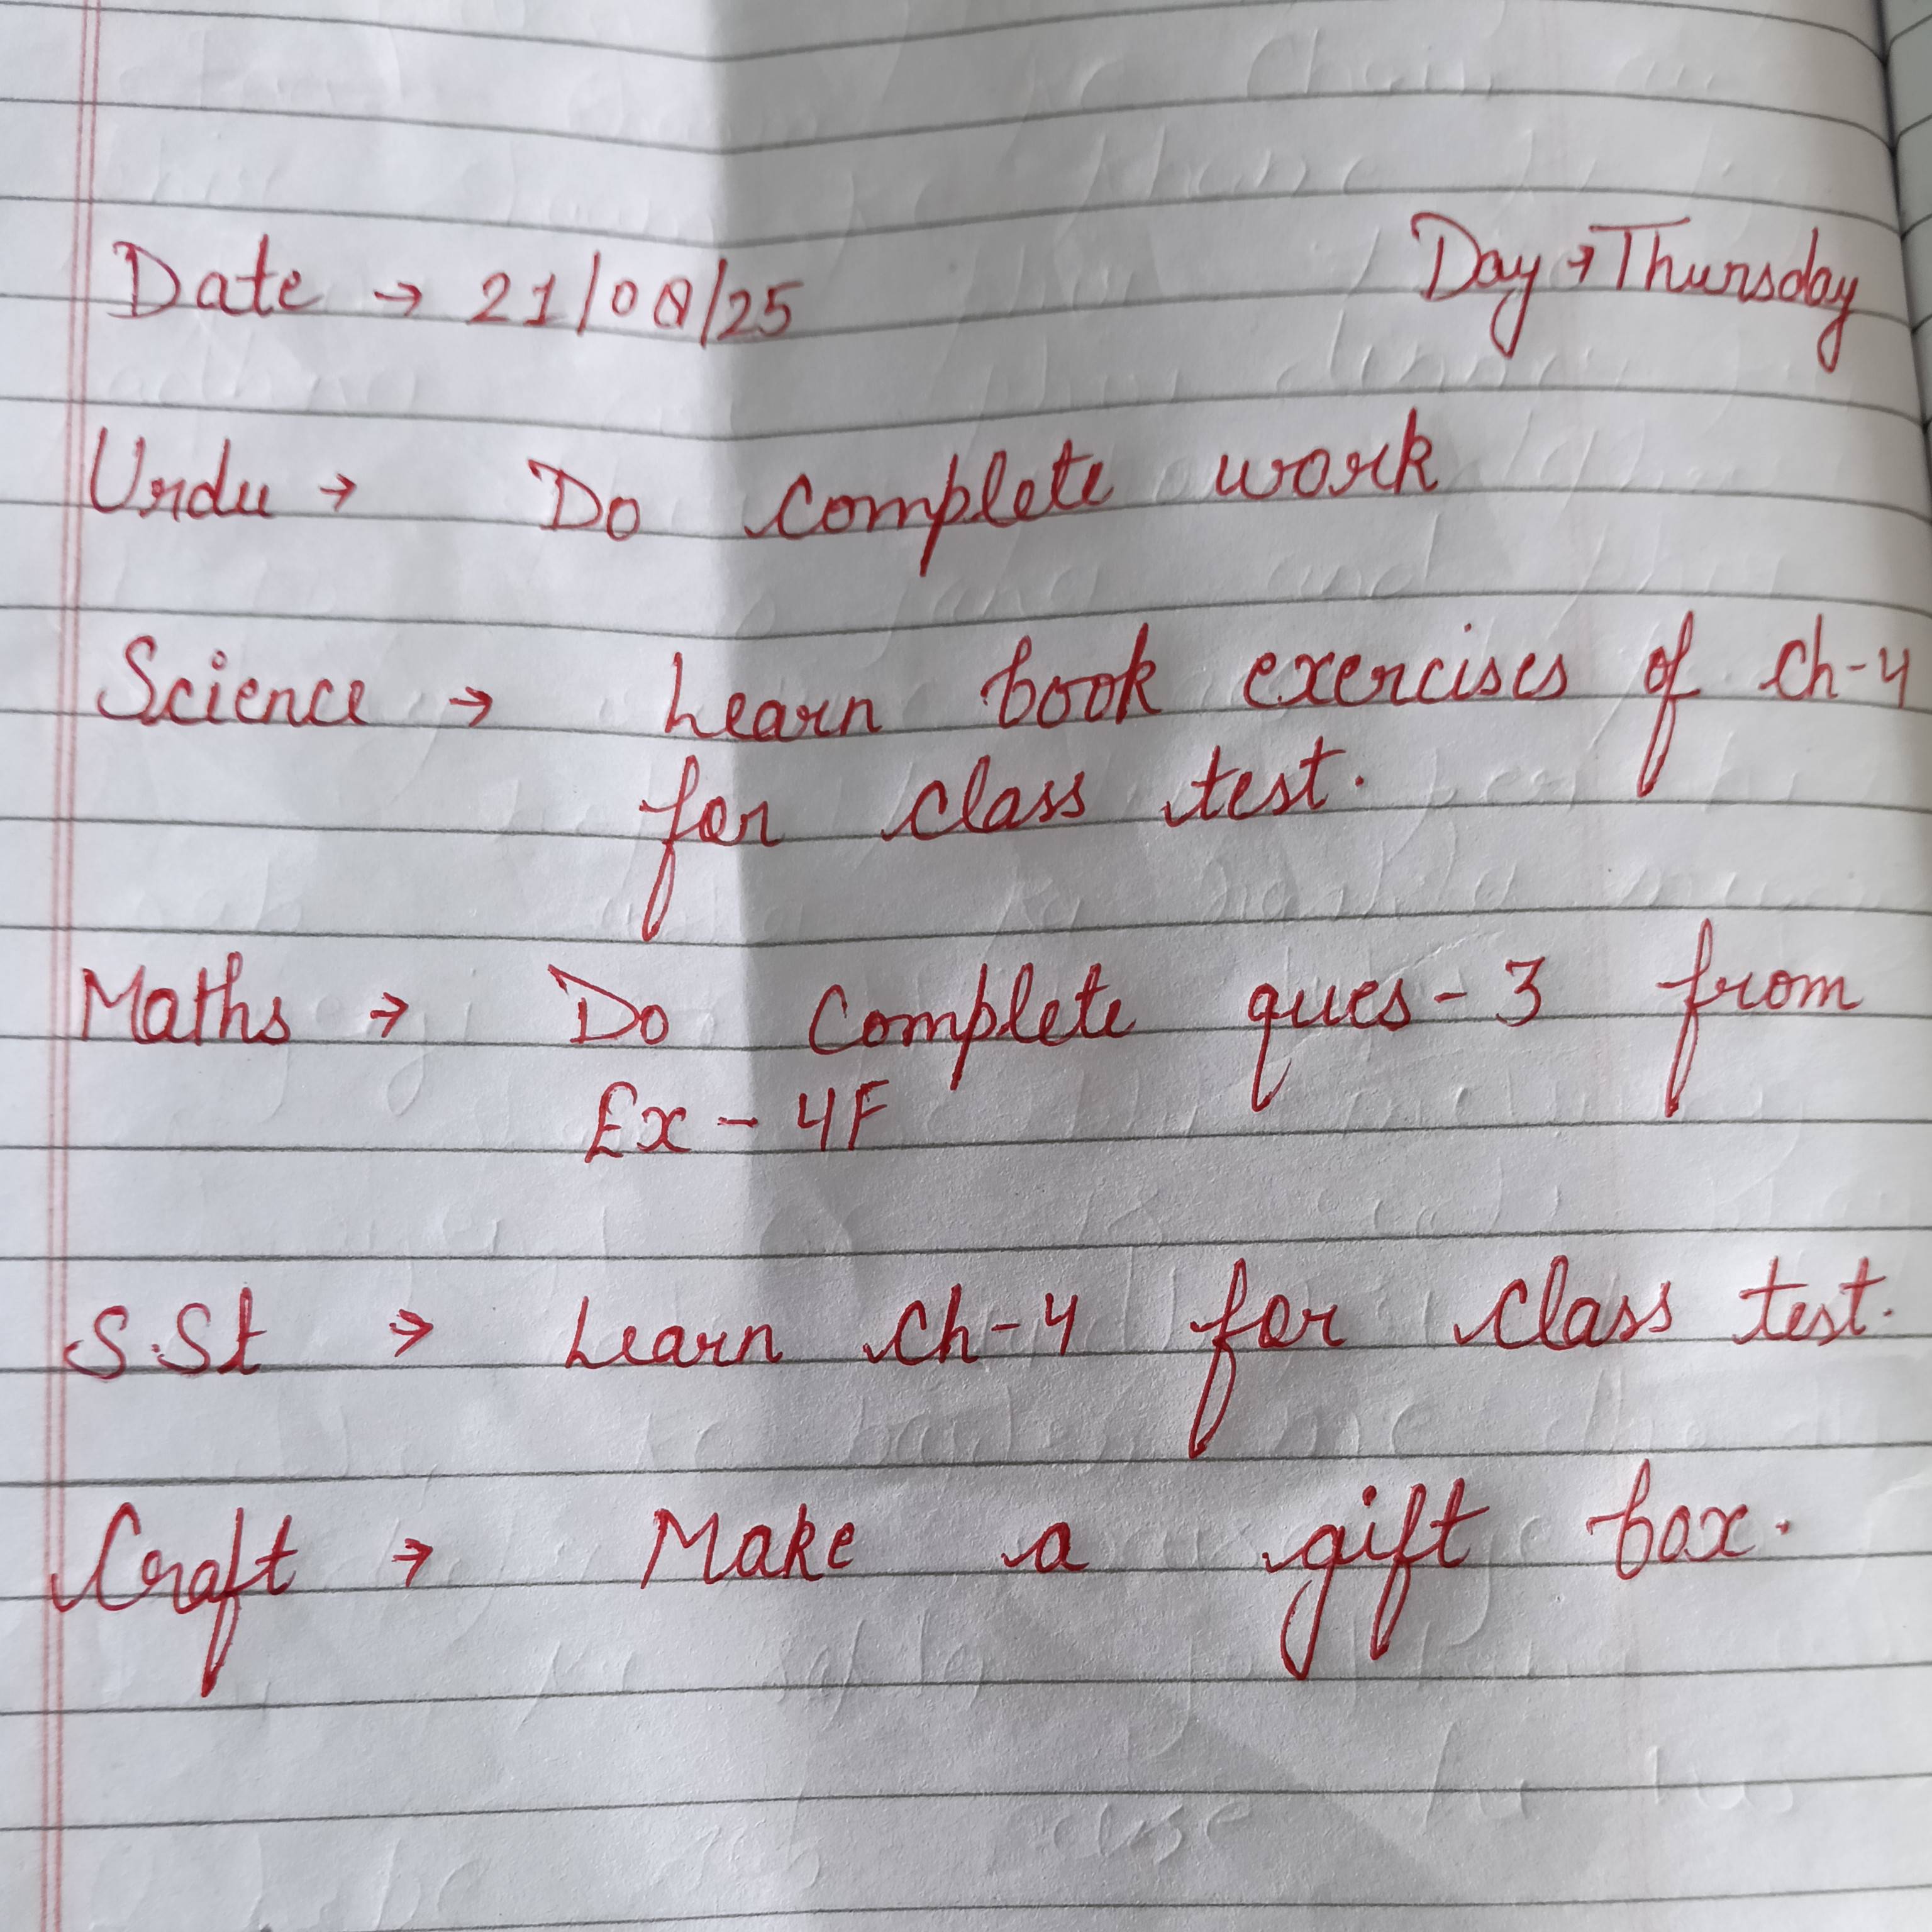 Date → 21/08/25 Day → Thursday
Urdu → Do complete work
Science → Learn book exercises of ch-4
for class test.
Maths → Do Complete ques-3 from
Ex - 4F
S.St → Learn ch-4 for class test.
Craft → Make a gift box.